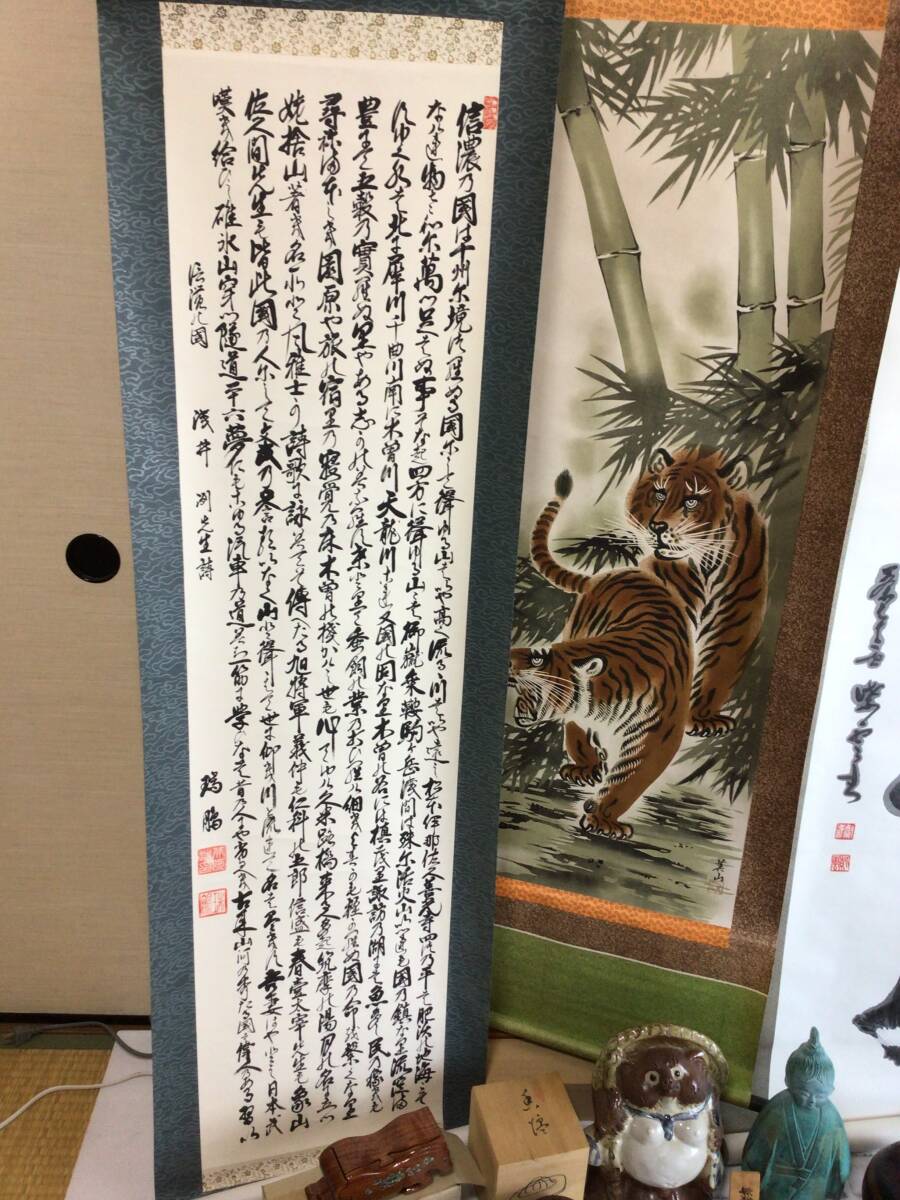 信濃乃國は十州尓境川連ぬる國尓して聳ゆる山はいや高く流るゝ川はいや遠し松本伊那佐久善光寺四つ乃平は肥沃之地海こそ
なけれ物さ八尓萬川足らはぬ事そなき四方に聳ゆる山々は御嶽乗鞍駒ヶ岳浅間は殊尓活火山いつれも國乃鎮なり流れ淀ま
すゆく水は北に犀川千曲川南に木曽川天龍川これ又國の固なり木曽の谷には槙茂り諏訪乃湖には魚多し民乃稼も
豊尓て五穀乃實らぬ里やあるしかのみならす桑とりて蚕飼の業乃打ひらけ細きよすかも軽からぬ國乃命を繋くなり
尋ねまほしき園原や旅の宿里乃寝覚乃床木曽の棧かけし世も心してゆけ久米路橋来る人多き筑摩の湯月の名に立つ
姨捨山著き名所と風雅士か詩歌に詠てそ傳へたる旭将軍義仲も仁科の五郎信盛も春臺太宰先生も象山
佐久間先生も皆此國乃人尓して文武乃誉たくひなく山と聳えて世に仰き川と流れて名は尽す吾妻はやとし日本武
嘆き給ひし碓氷山穿つ隧道二十六夢にもこゆる汽車乃道みち一筋に学ひなは昔乃人にや劣るへき古来山河乃秀たる國は偉人のある習ひ
信濃の國　浅井　洌先生詩
瑞鵬
英山